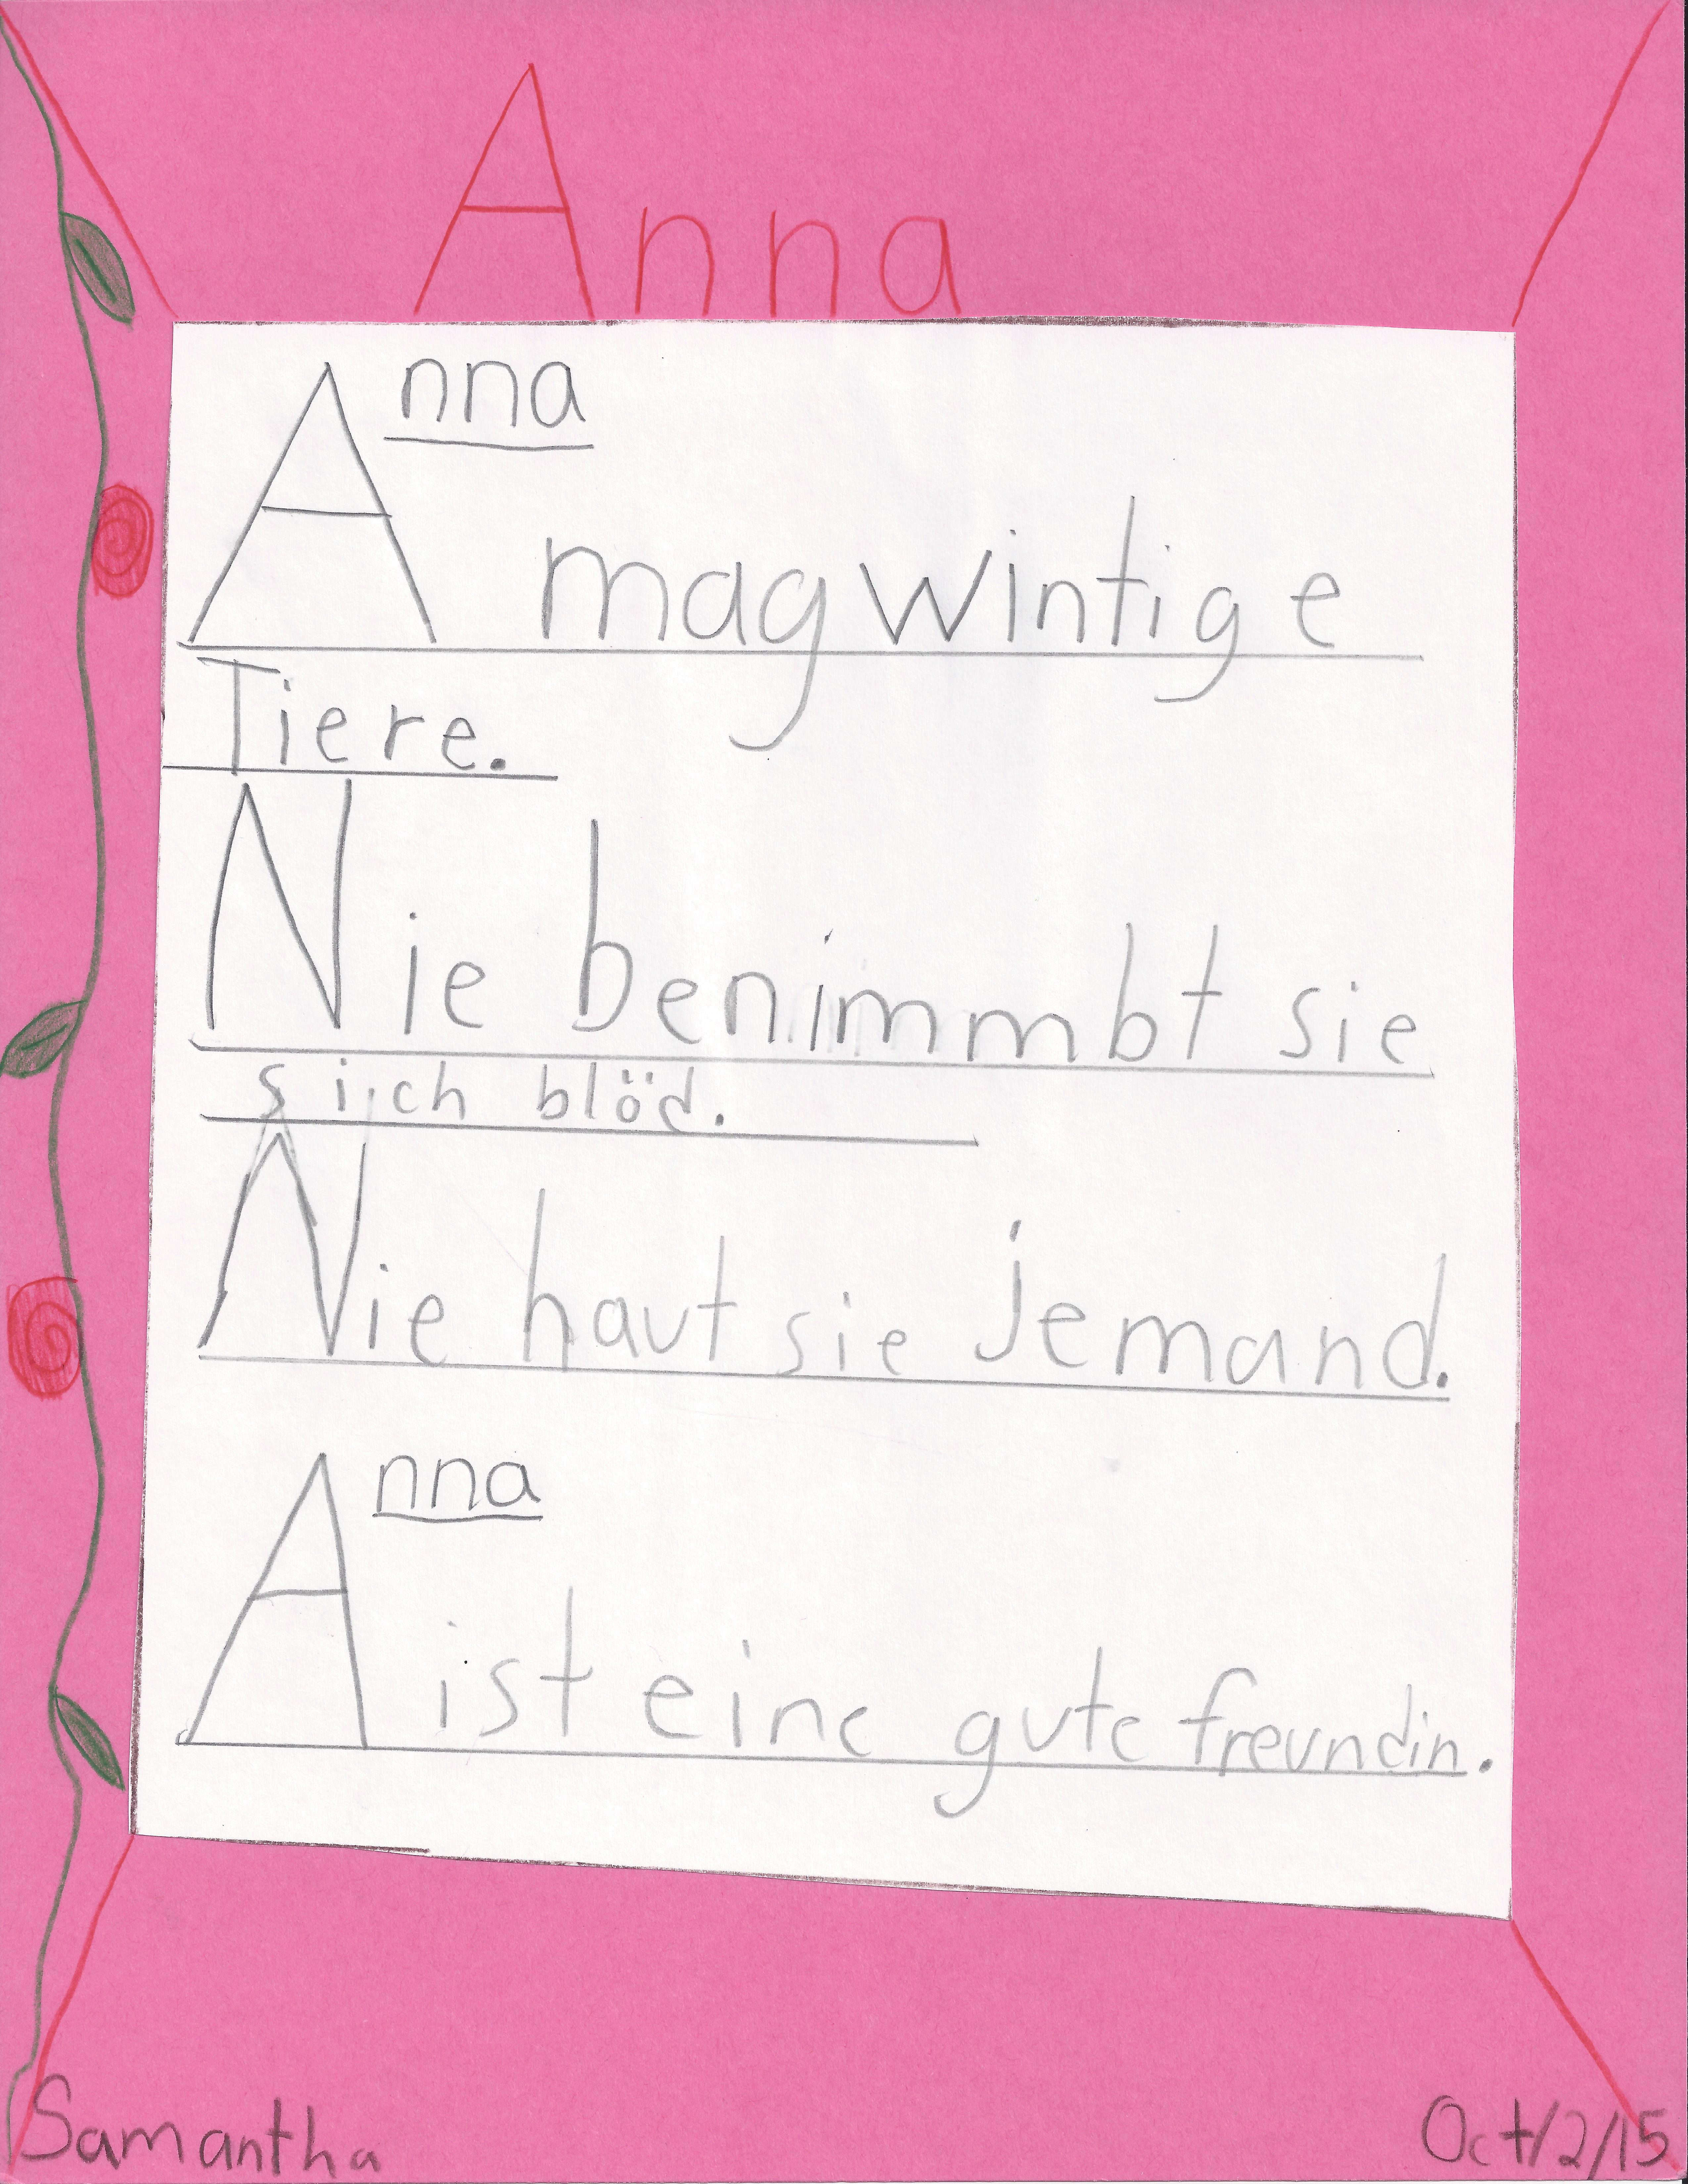 Anna
Anna mag wintige
Tiere.
Nie benimmbt sie
siich blöd.
Nie haut sie jemand.
Anna ist eine gute freundin.
Samantha
Oct/2/15